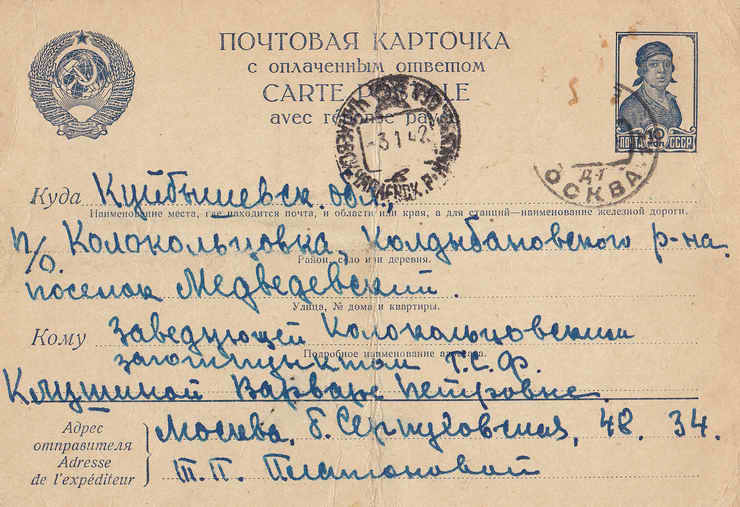 ПОЧТОВАЯ КАРТОЧКА
с оплаченным ответом
CARTE
avec réponse payée
10 КОП
ПОЧТА СССР
3 1 42
Д-1
МОСКВА
Куда Куйбышевск. обл.,
Наименование места, где находится почта, и области или края, а для станций—наименование железной дороги.
п/о. Колокольцовка, Колдыбановского р-на.
Район, село или деревня.
поселок Медведевский.
Улица, № дома и квартиры.
Кому Заведующей Колокольцовским
Подробное наименование адресата.
заготпунктом Г.С.Ф.
Клушиной Варваре Петровне.
Адрес отправителя
Adresse de l'expéditeur
Москва, Б. Серпуховская, 48. 34.
Т. П. Платоновой